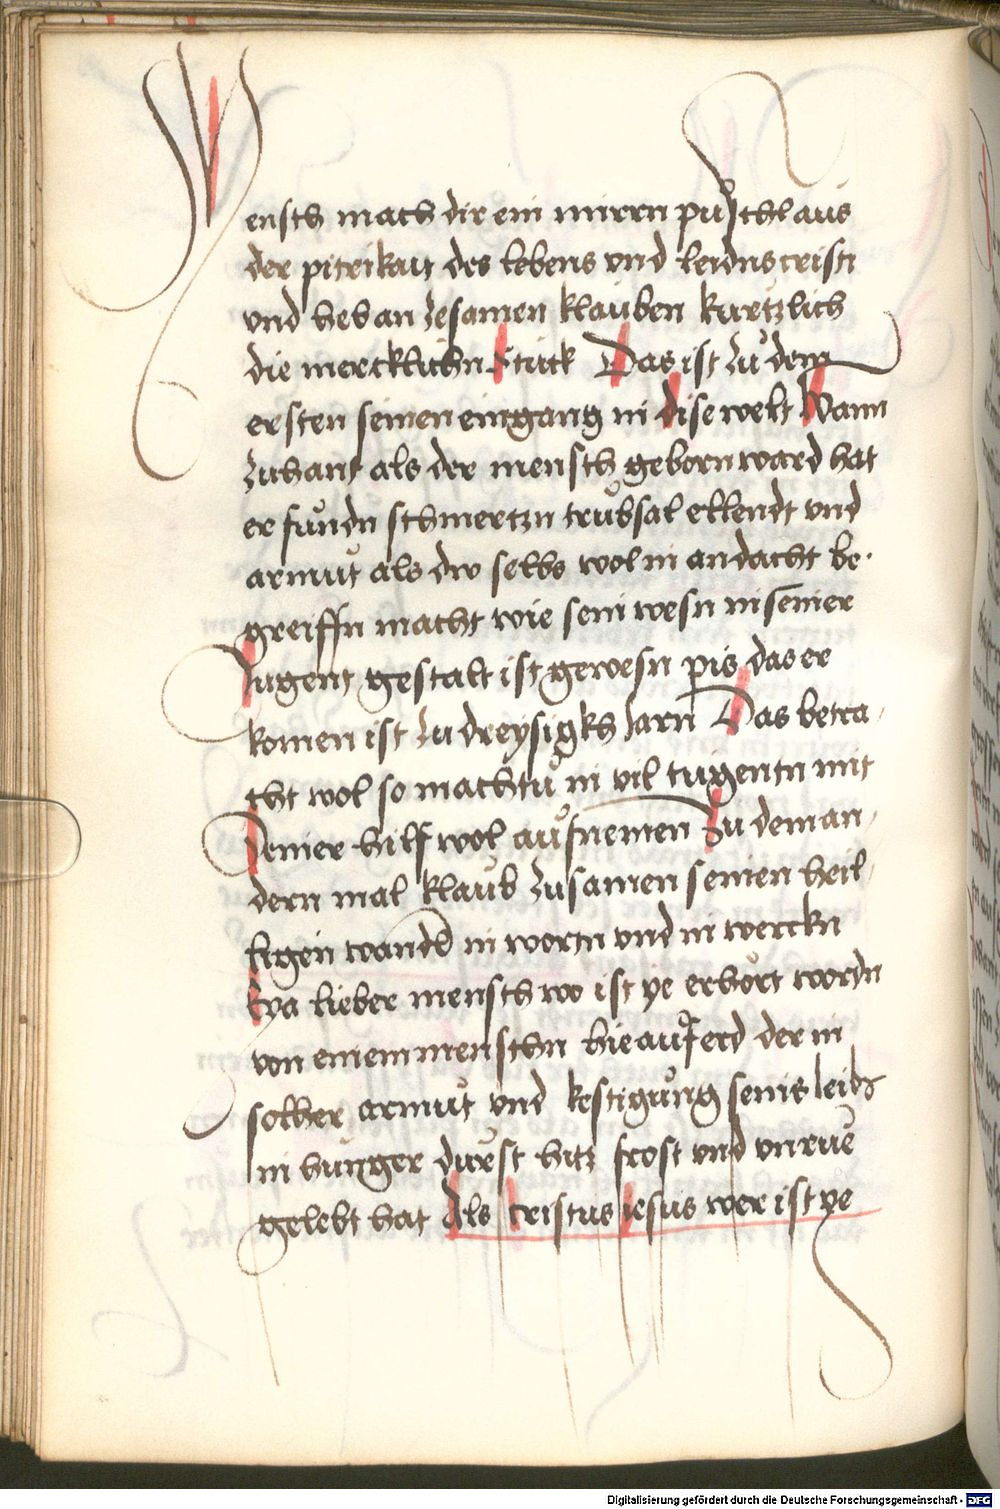 Mensch mach dir ein mirrn púschl aus
der pitrikait des lebens vnd leidns cristi
vnd heb an zesamen klauben kurtzlich
die mercklichn Stuck Das ist zu dem
ersten seinen eingang in dise welt Wann
zuhant als der mensch geborn ward hat
er fundn schmertzn trubsal ellendt vnd
armut als dw selbs wol in andacht be
greiffn macht wie sein wesn in seiner
Jugent gestalt ist gewesn pis das er
komen ist zu dreysigk Jarn Das betra
cht wol so machtu in vil tugentn mit
Seiner hilf wol aufnemen Zu dem an
dern mal klaub zusamen seinen heil
ligen wandl in wortn vnd in werckn
Eya lieber mensch wo ist ye erhort wordn
von einem menschn hie auf erd der in
solher armut vnd kestigung seins leibs
in hunger durst hitz frost vnd vnrue
gelebt hat Als cristus iesus wer ist ye
Digitalisierung gefördert durch die Deutsche Forschungsgemeinschaft - DFG